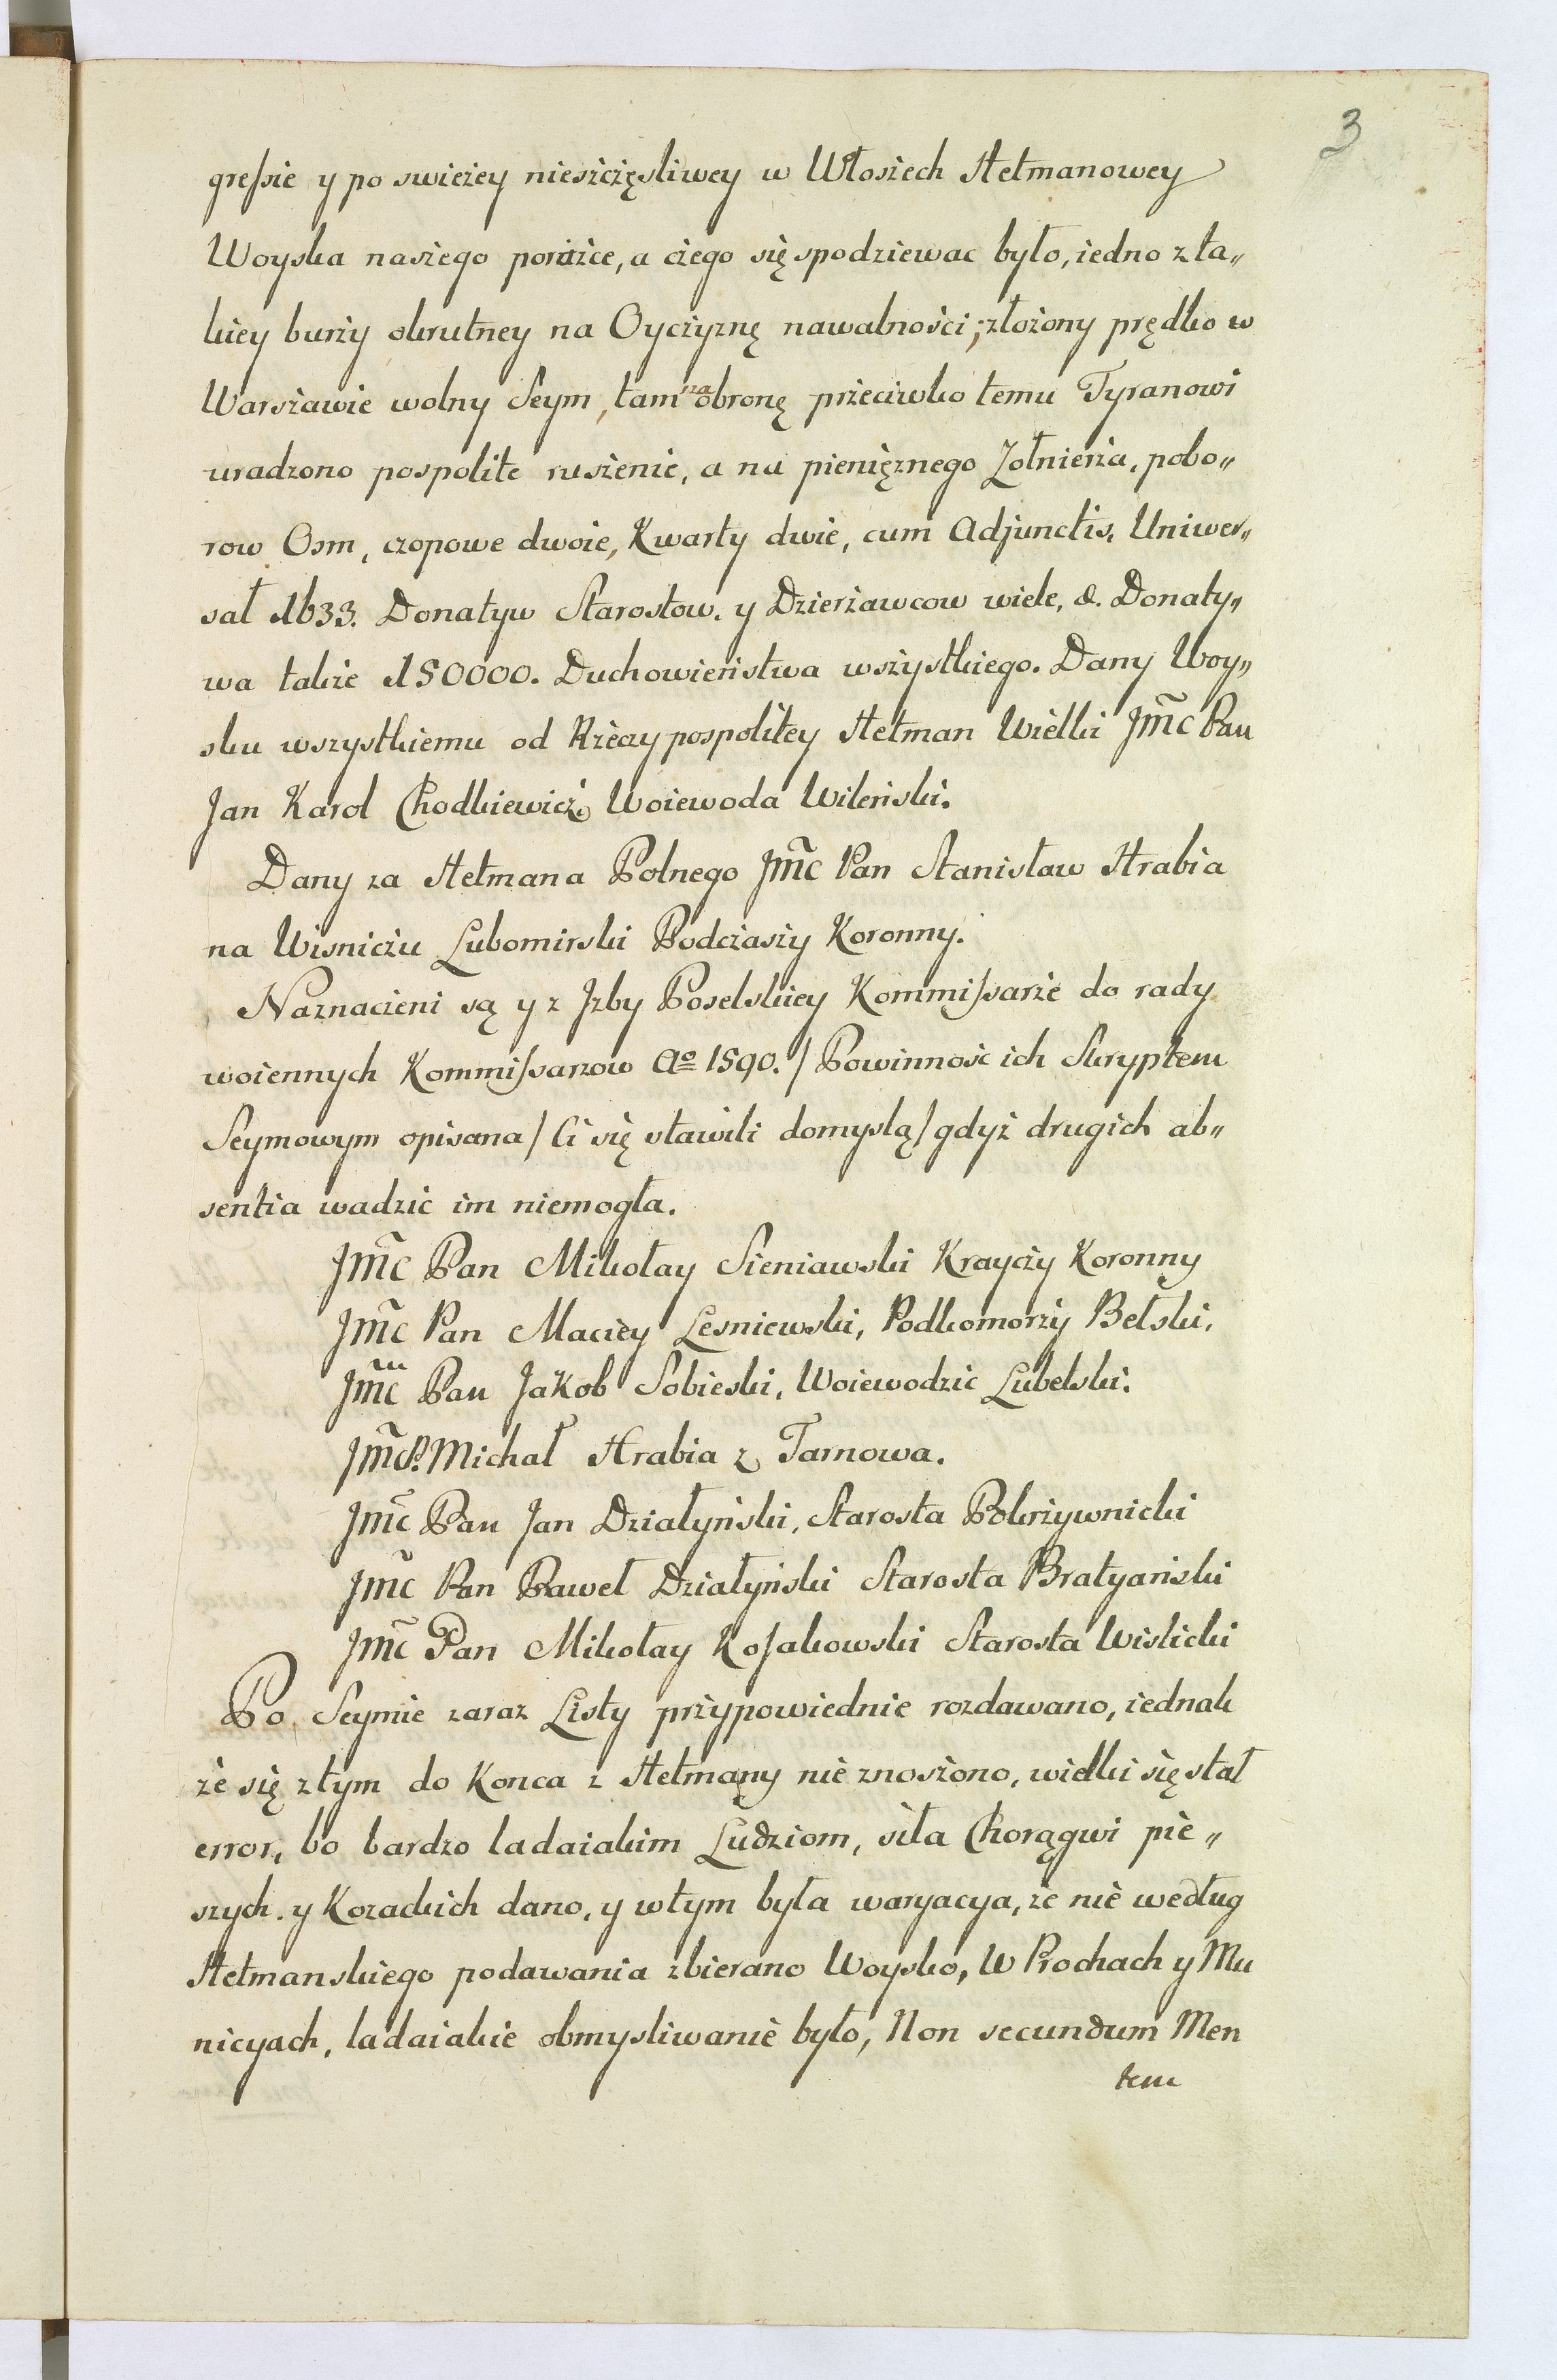 3
greſsie y po swieżey nieszczęsliwey w Włoszech Hetmanowey
Woyska naszego porażce, a czego się spodziewac było, iedno z ta„
kiey burzy okrutney na Oyczyznę nawalności; złożony prędko w
Warszawie wolny Seym, tam za obronę przeciwko temu Tyranowi
uradzono pospolite ruszenie, a na pieniężnego Zołnierza, pobo„
row Osm, czopowe dwoie, Kwarty dwie, cum Adjunctis, Uniwer„
sał 1633. Donatyw Starostow. y Dzierżawcow wiele, &. Donaty„
wa także 150000. Duchowieństwa wszystkiego. Dany Woy„
sku wszystkiemu od Rzeczy pospolitey Hetman Wielki Jmc̃ Pan
Jan Karol Chodkiewicz Woiewoda Wileński.
Dany za Hetmana Polnego Jmc̃ Pan Stanisław Hrabia
na Wisniczu Lubomirski Podczaszy Koronny.
Naznaczeni są y z Jzby Poselskiey Kommiſsarze do rady
woiennych Kommiſsarzow Aº 1590. / Powinnosc ich Skryptem
Seymowym opisana / Ci się stawili domyslą / gdyż drugich ab„
sentia wadzic im niemogła.
Jmc̃ Pan Mikołay Sieniawski Krayczy Koronny
Jmc̃ Pan Maciey Lesniewski, Podkomorzy Bełski,
Jmc̃ Pan Jakob Sobieski, Woiewodzic Lubelski.
Jmc̃ P. Michał Hrabia z Tarnowa.
Jmc̃ Pan Jan Działyński, Starosta Pokrzywnicki
Jmc̃ Pan Paweł Działyński Starosta Bratyański
Jmc̃ Pan Mikołay Koſakowski Starosta Wislicki
Po Seymie zaraz Listy przypowiednie rozdawano, iednak
że się z tym do Konca z Hetmany nie znoszono, wielki się stał
error, bo bardzo ladaiakim Ludziom, siła Chorągwi pie„
szych. y Kozackich dano, y w tym była waryacya, że nie według
Hetmanskiego podawania zbierano Woysko, W Prochach y Mu
nicyach, ladaiakie obmysliwanie było, Non secundum Men
tem